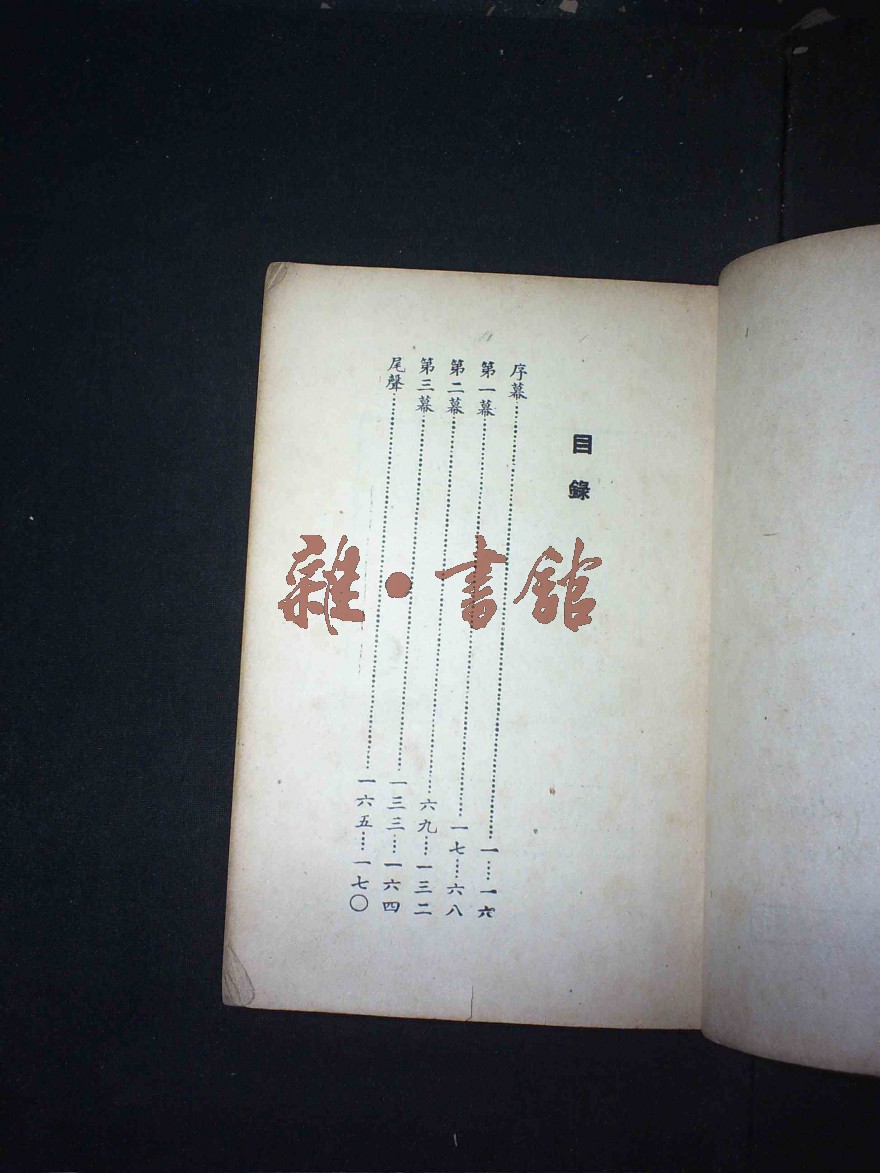 目錄
序幕……一……一六
第一幕……一七……六八
第二幕……六九……一三二
第三幕……一三三……一六四
尾聲……一六五……一七〇
雜·書館